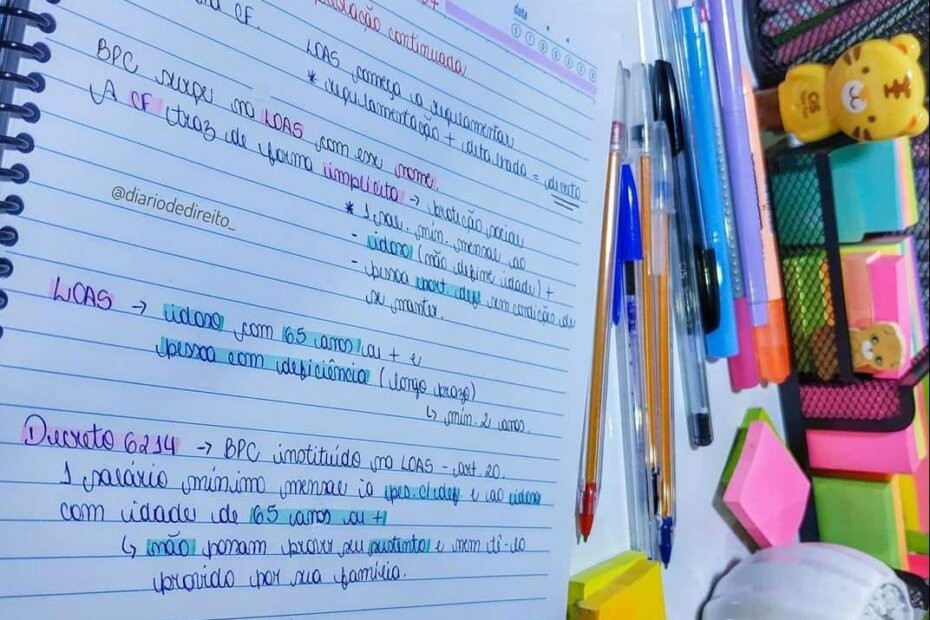 data
CF.
prestação continuada
LOAS começa a regulamentar
* regulamentação + detalhada = decreto
BPC surge na LOAS com esse nome.
A CF traz de forma implícita → proteção social
* 1 sal. mín. mensal ao
- idoso (não define idade) +
- pessoa port. def. sem condição de
se manter.
@diariodedireito_
LOAS → idoso com 65 anos ou + e
pessoa com deficiência (longo prazo)
↳ mín. 2 anos.
Decreto 6214 → BPC instituído na LOAS - art. 20.
1 salário mínimo mensal à pes. c/ def. e ao idoso
com idade de 65 anos ou +
↳ não possam prover seu sustento e nem tê-lo
provido por sua família.
CIS